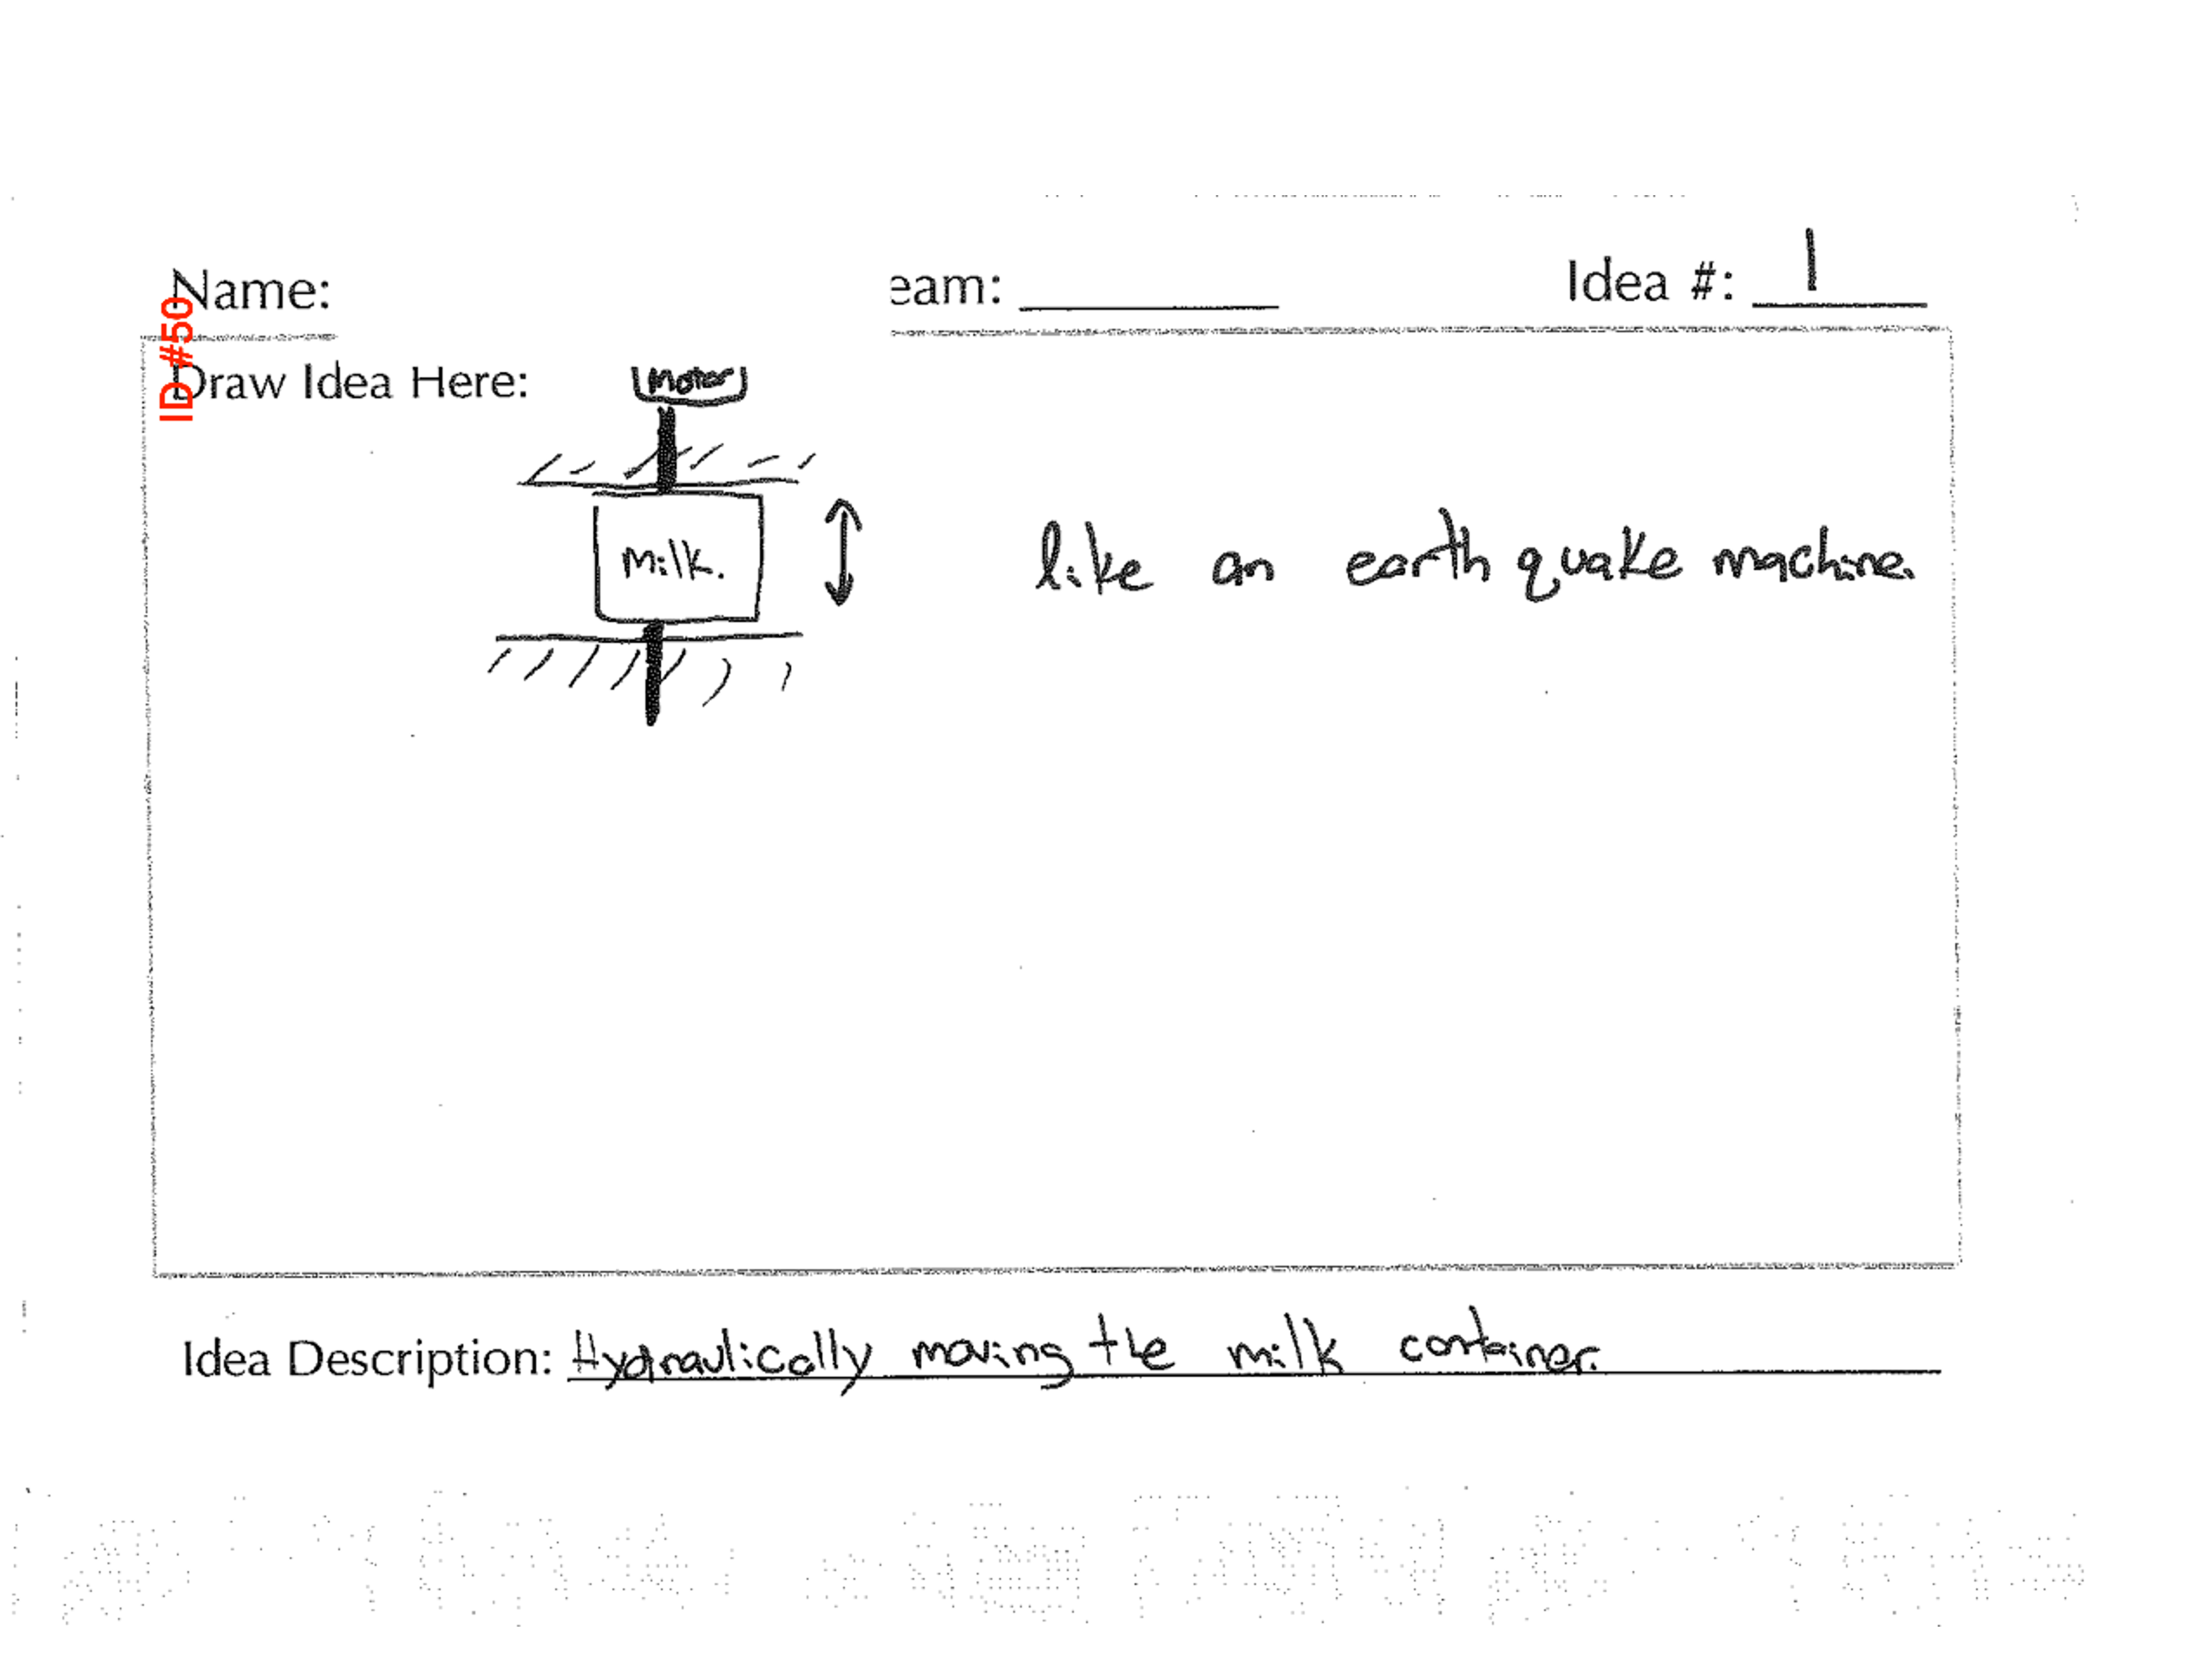 Name:
eam:
Idea #: 1
ID#50
Draw Idea Here:
motor
milk.
like an earth quake machine.
Idea Description: Hydraulically moving the milk container.